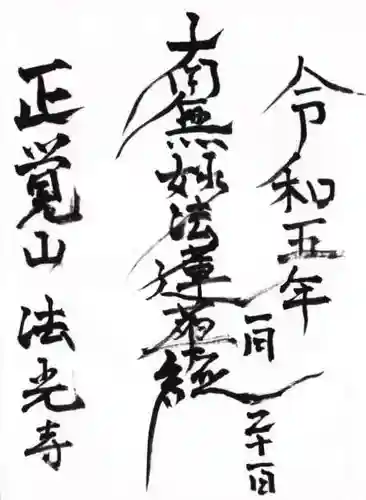 令和五年
一月二十一日
南無妙法蓮華経
正覚山 法光寺